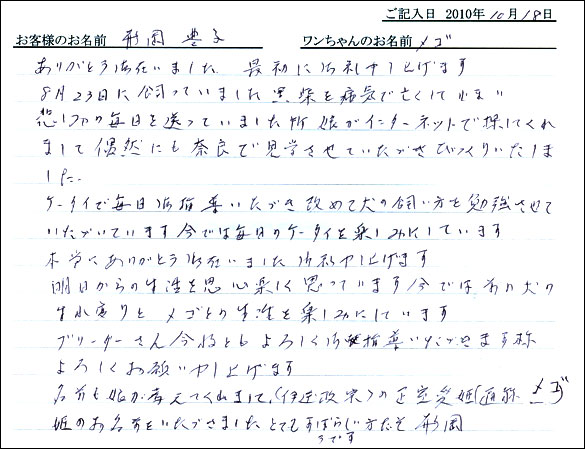 ご記入日 2010年10月18日
お客様のお名前 形岡 豊子 ワンちゃんのお名前 メゴ
ありがとう御在いました 最初に御礼申し上げます
8月23日に飼っていました黒柴を病気で亡くしてしまい
悲しみの毎日を送っていました所 娘がインターネットで探してくれ
まして偶然にも奈良で見学させていただきびっくりいたしま
した。
ケータイで毎日御指導いただき改めて犬の飼い方を勉強させて
いただいています今では毎日のケータイを楽しみにしています
本当にありがとう御在いました御礼申し上げます
明日からの生活を思い楽しく思っています今では前の犬の
生れ変りとメゴとの生活を楽しみにしています
ブリーダーさん今后ともよろしく御指導いただきます様
よろしくお願い申し上げます
名前も娘が考えてくれまして、(伊達政宗)の正室愛姫(通称 メゴ
姫のお名前をいただきましたとてもすばらしい方だそ 形岡
うです